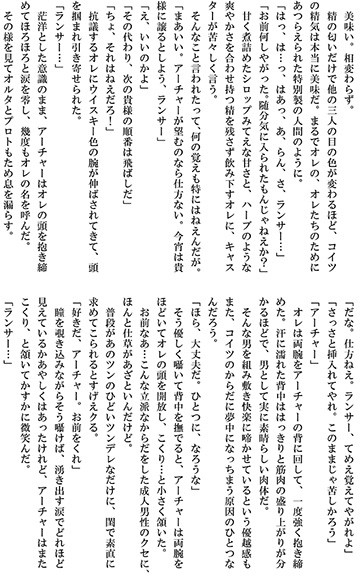 美味い。相変わらず。
精の匂いだけで他の三人の目の色が変わるほど、コイツ
の精気は本当に美味だ。まるでオレの、オレたちのために
あつらえられた特別製の人間のように。
「はっ、は…っ、はあっ、あ、らん、さ、ランサー…」
「お前何しやがった。随分気に入られたもんじゃねえか？」
甘く煮詰めたシロップみてえな甘さと、ハーブのような
爽やかさを合わせ持つ精を残さず飲み下すオレに、キャス
ターが苦々しく言う。
そんなこと言われたって、何の覚えも特にはねえんだが。
「まあいい。アーチャーが望むのなら仕方ない。今宵は貴
様に譲るとしよう、ランサー」
「え、いいのかよ」
「その代わり、次の貴様の順番は飛ばしだ」
「ちょ、それはねえだろ！」
抗議するオレにウイスキー色の腕が伸ばされてきて、頭
を掴まれ引き寄せられた。
「ランサー…」
茫洋とした意識のまま、アーチャーはオレの頭を抱き締
めてほろほろと涙を零し、幾度もオレの名を呼んだ。
その様を見てオルタとプロトもため息を漏らす。
「だな、仕方ねえ。ランサー、てめえ覚えてやがれよ」
「さっさと挿入れてやれ。このままじゃ苦しかろう」
「アーチャー」
オレは両腕をアーチャーの背に回して、一度強く抱き締
めた。汗に濡れた背中ははっきりと筋肉の盛り上がりが分
かるほどで、男として実に素晴らしい肉体だ。
そんな男を組み敷き快楽に啼かせているという優越感も
また、コイツのからだに夢中になっちまう原因のひとつな
んだろう。
「ほら、大丈夫だ。ひとつに、なろうな」
そう優しく囁いて背中を撫でると、アーチャーは両腕を
ほどいてオレの頭を開放し、こくり…と小さく頷いた。
お前なあ…こんな立派なからだをした成人男性のクセに、
ほんと仕草があざといんだけど。
普段があのツンのひどいツンデレなだけに、閨で素直に
求めてこられるとすげえクる。
「好きだ、アーチャー。お前をくれ」
瞳を覗き込みながらそう囁けば、湧き出す涙でどれほど
見えているかあやしくはあったけれど、アーチャーはまた
こくり、と頷いてかすかに微笑んだ。
「ランサー…」